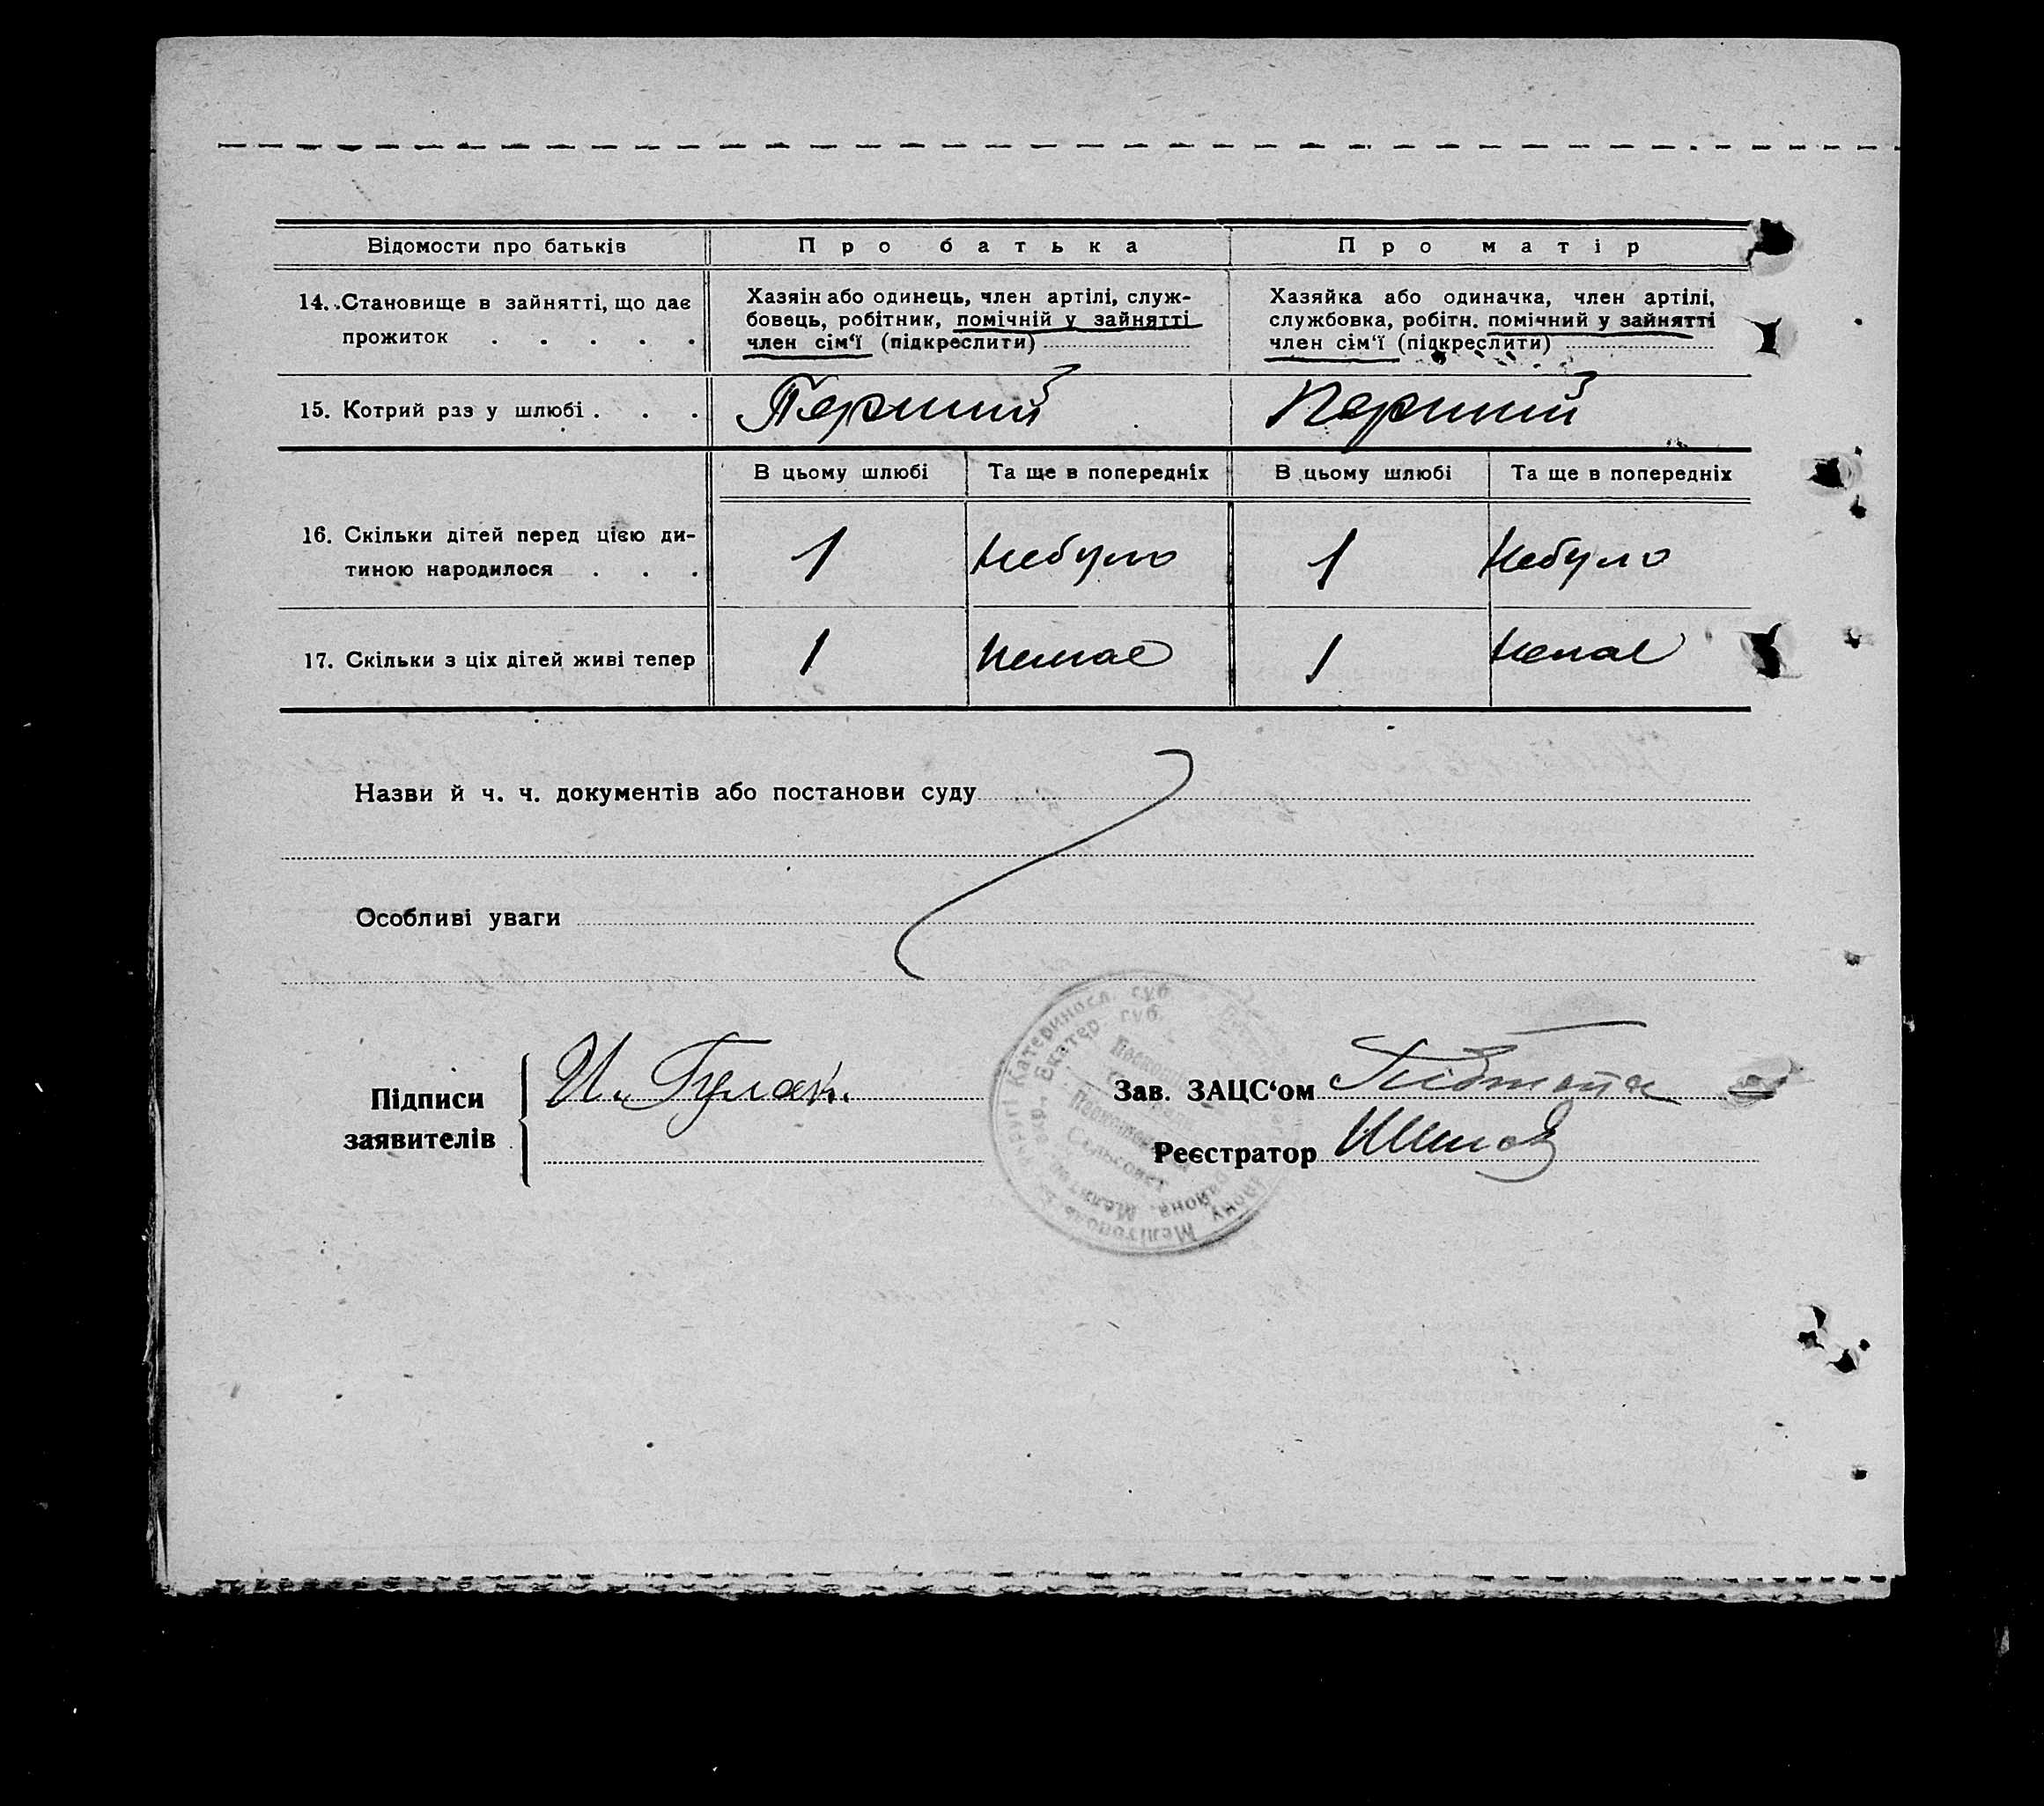 Відомости про батьків Про батька Про матір
14. Становище в зайнятті, що дає
прожиток . . . . .
Хазяін або одинець, член артілі, служ-
бовець, робітник, помічній у зайнятті
член сім‘ї (підкреслити)
Хазяйка або одиначка, член артілі,
службовка, робітн. помічний у зайнятті
член сім‘ї (підкреслити)
15. Котрий раз у шлюбі . . . Перший Перший
В цьому шлюбі Та ще в попередніх В цьому шлюбі Та ще в попередніх
16. Скільки дітей перед цією ди-
тиною народилося . . . 1 Небуло 1 Небуло
17. Скільки з ціх дітей живі тепер 1 Немає 1 Немає
Назви й ч. ч. документів або постанови суду
Особливі уваги
Підписи
заявителів
И. Гулак.
Катериносл. губ.
Екатер. губ.
Сельсовет
района, Мелитоп. окр.
Зав. ЗАЦС‘ом
Реєстратор